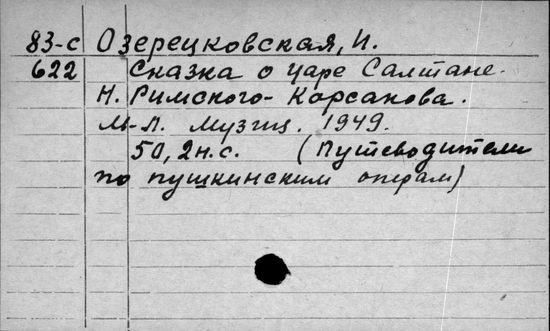 83-с Озерецковская, И.
622 Сказка о царе Салтане.
Н. Римского-Корсакова.
М-Л. Музгиз. 1949.
50, 2н.с. (Путеводители
по пушкинским операм)